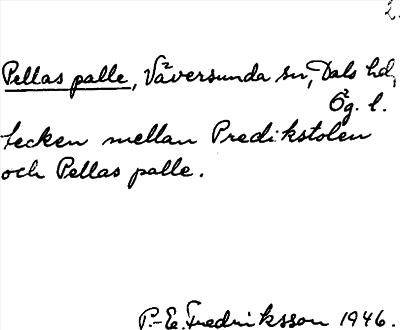 2.
Pellas palle, Väversunda sn, Dals hd,
Ög. l.
tecken mellan Predikstolen
och Pellas palle.
P.-E. Fredriksson 1946.